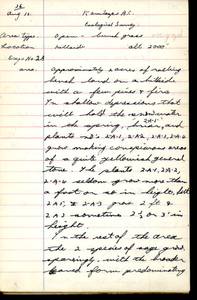 36
Aug 10. Kamloops B.C.
Ecological Survey.
Area type. Open - bunch grass
Location hillside alt 2000
Days No 2A
area. Approximately 2 acres of rolling
bench land on a hillside
with a few pines & firs
In shallow depressions that
will hold the water
in the spring, 2A5, and
plants 2A1, 2A2, 2A4
grow making conspicuous areas
of a quite yellowish general
tone. The plants 2A1, 2A2,
2A4 seldom grow more than
a foot or so in height, but
2A5, & 2A3 grow 2 ft &
2A3 sometimes 2½ or 3' in
height.
In the rest of the area
the 2 species of sage grow
sparingly, with the
form predominating